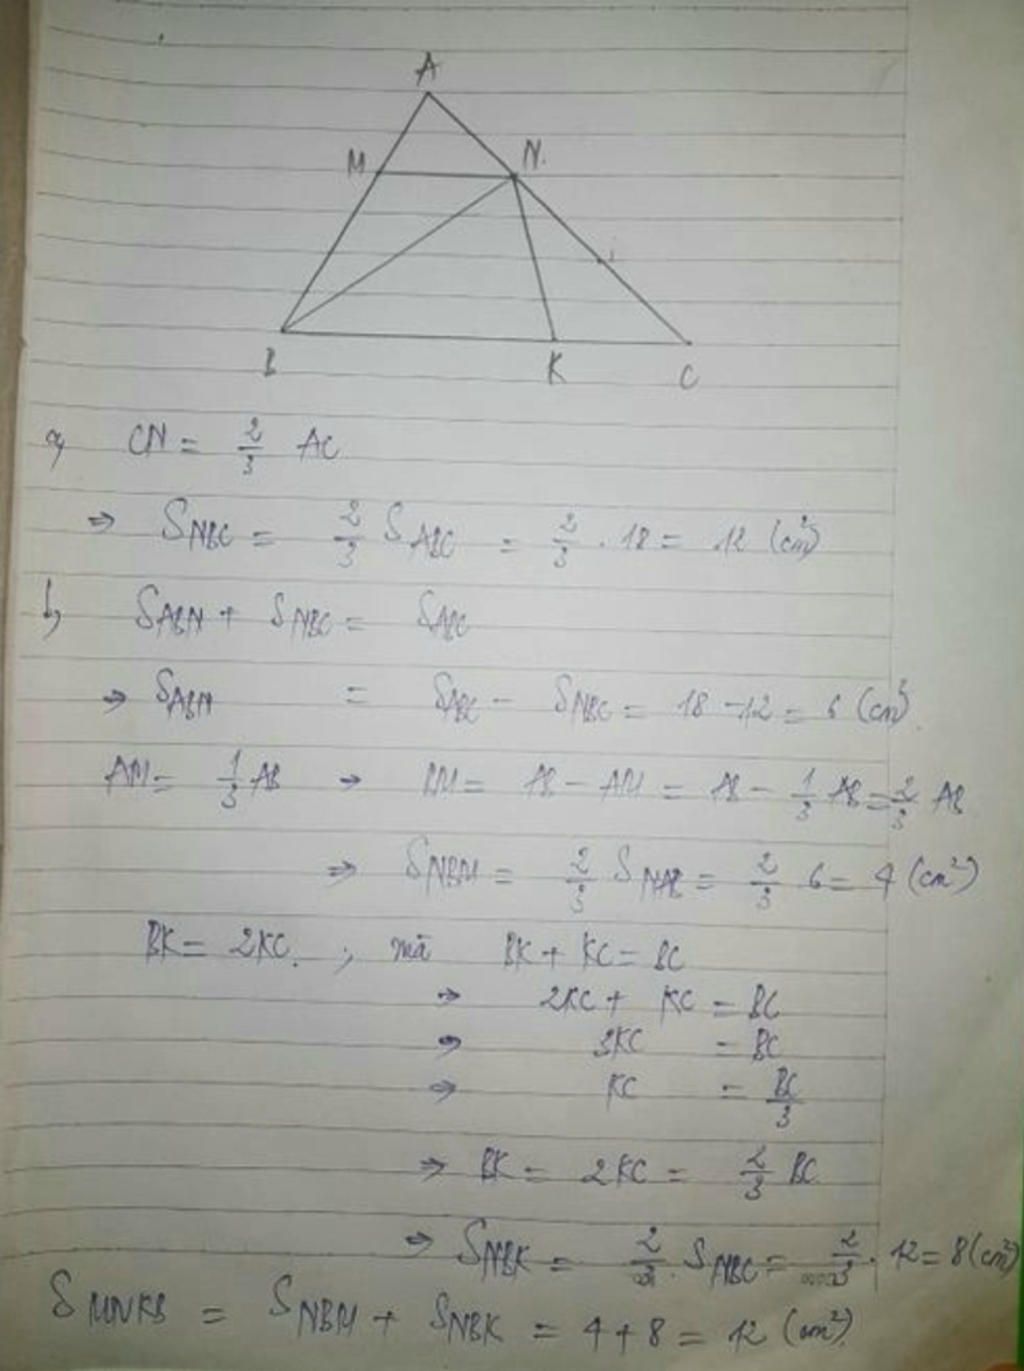 A
M N.
B K C
a, CN = 2/3 AC
⇒ S_NBC = 2/3 S_ABC = 2/3 . 18 = 12 (cm²)
b, S_ABN + S_NBC = S_ABC
⇒ S_ABN = S_ABC - S_NBC = 18 - 12 = 6 (cm²).
AM = 1/3 AB → BM = AB - AM = AB - 1/3 AB = 2/3 AB
⇒ S_NBM = 2/3 S_NAB = 2/3 6 = 4 (cm²)
BK = 2KC. ; mà BK + KC = BC
⇒ 2KC + KC = BC
⇒ 3KC = BC
⇒ KC = BC/3
⇒ BK = 2KC = 2/3 BC
⇒ S_NBK = 2/3 . S_NBC = 2/3 . 12 = 8 (cm²)
S_MNKB = S_NBM + S_NBK = 4 + 8 = 12 (cm²)